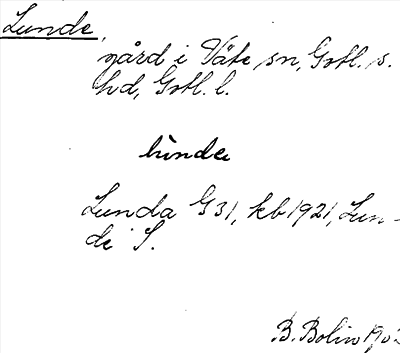 Lunde,
gård i Väte sn, Gotl. s.
hd, Gotl. l.
lùnde
Lunda G31, kb 1921, Lun-
de S.
B. Bolin